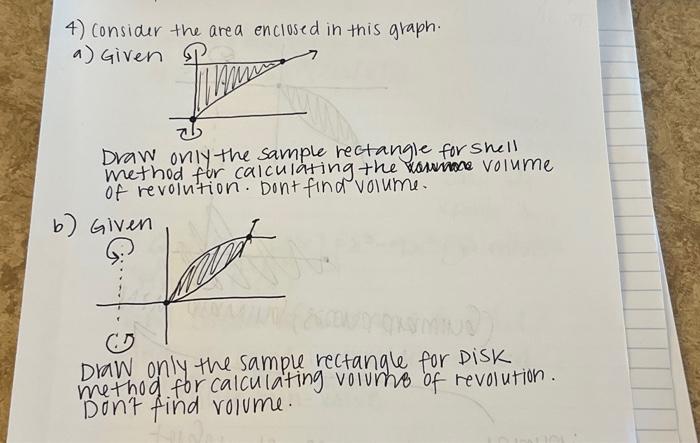 4) Consider the area enclosed in this graph.
a) Given
Draw only the sample rectangle for shell
method for calculating the volume
of revolution. Dont find volume.
b) Given
Draw only the sample rectangle for DISK
method for calculating volume of revolution.
Dont find volume.